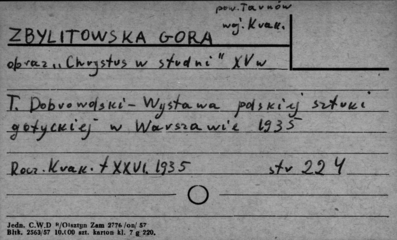 pow. Tarnów
woj. Krak.
ZBYLITOWSKA GORA
obraz „Chrystus w studni" XV w
T. Dobrowolski - Wystawa polskiej sztuki
gotyckiej w Warszawie 1935
Rocz. Krak. t XXVI. 1935 str 224
Jedn. C.W.D Olsztyn Zam 2776 /on/ 57
Bltk. 2563/57 10.100 szt. karton kl. 7 g 220.